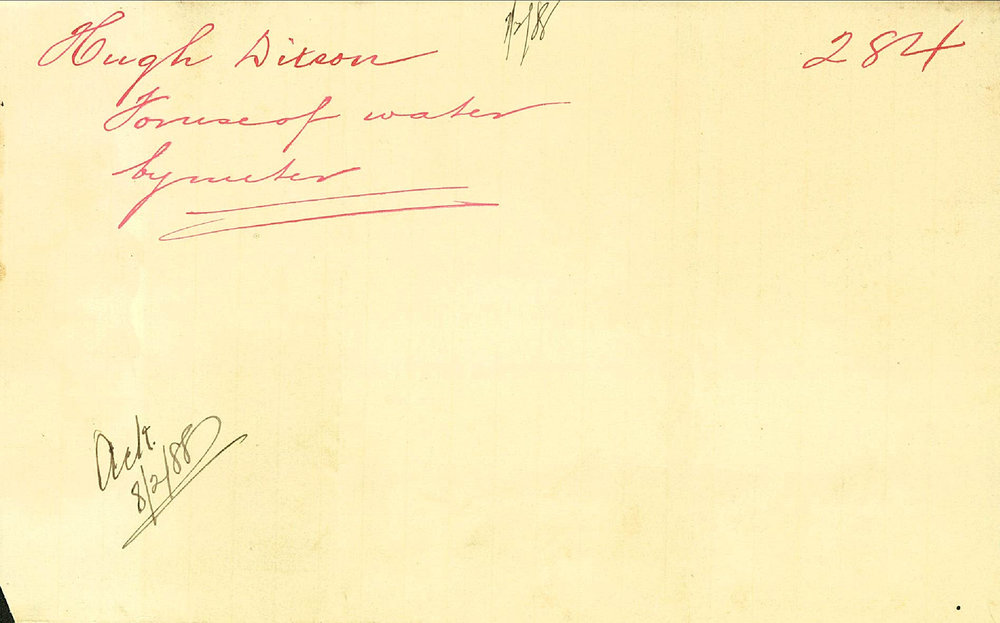 7/2/88
Hugh Dixson 284
For use of water
by meter
Ack.
8/2/88